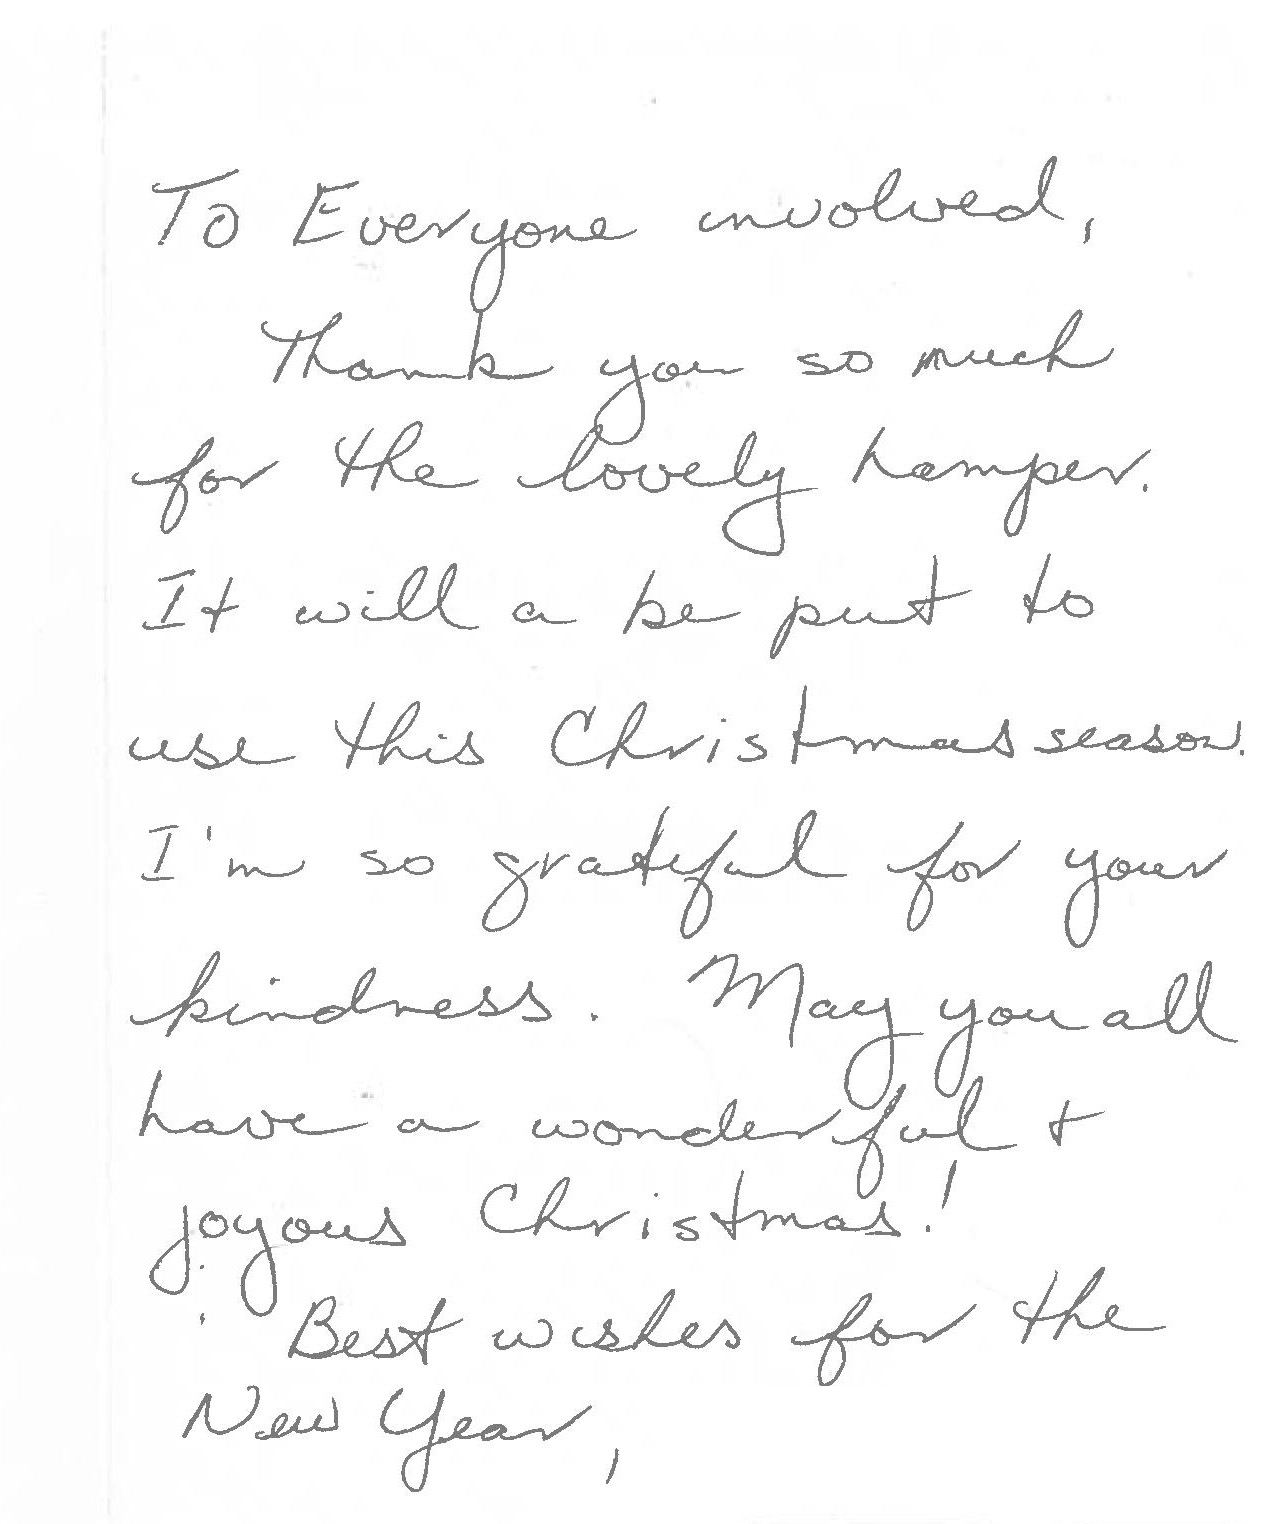 To Everyone involved,
Thank you so much
for the lovely hamper.
It will a be put to
use this Christmas season.
I'm so grateful for your
kindness. May you all
have a wonderful +
joyous Christmas!
Best wishes for the
New Year,